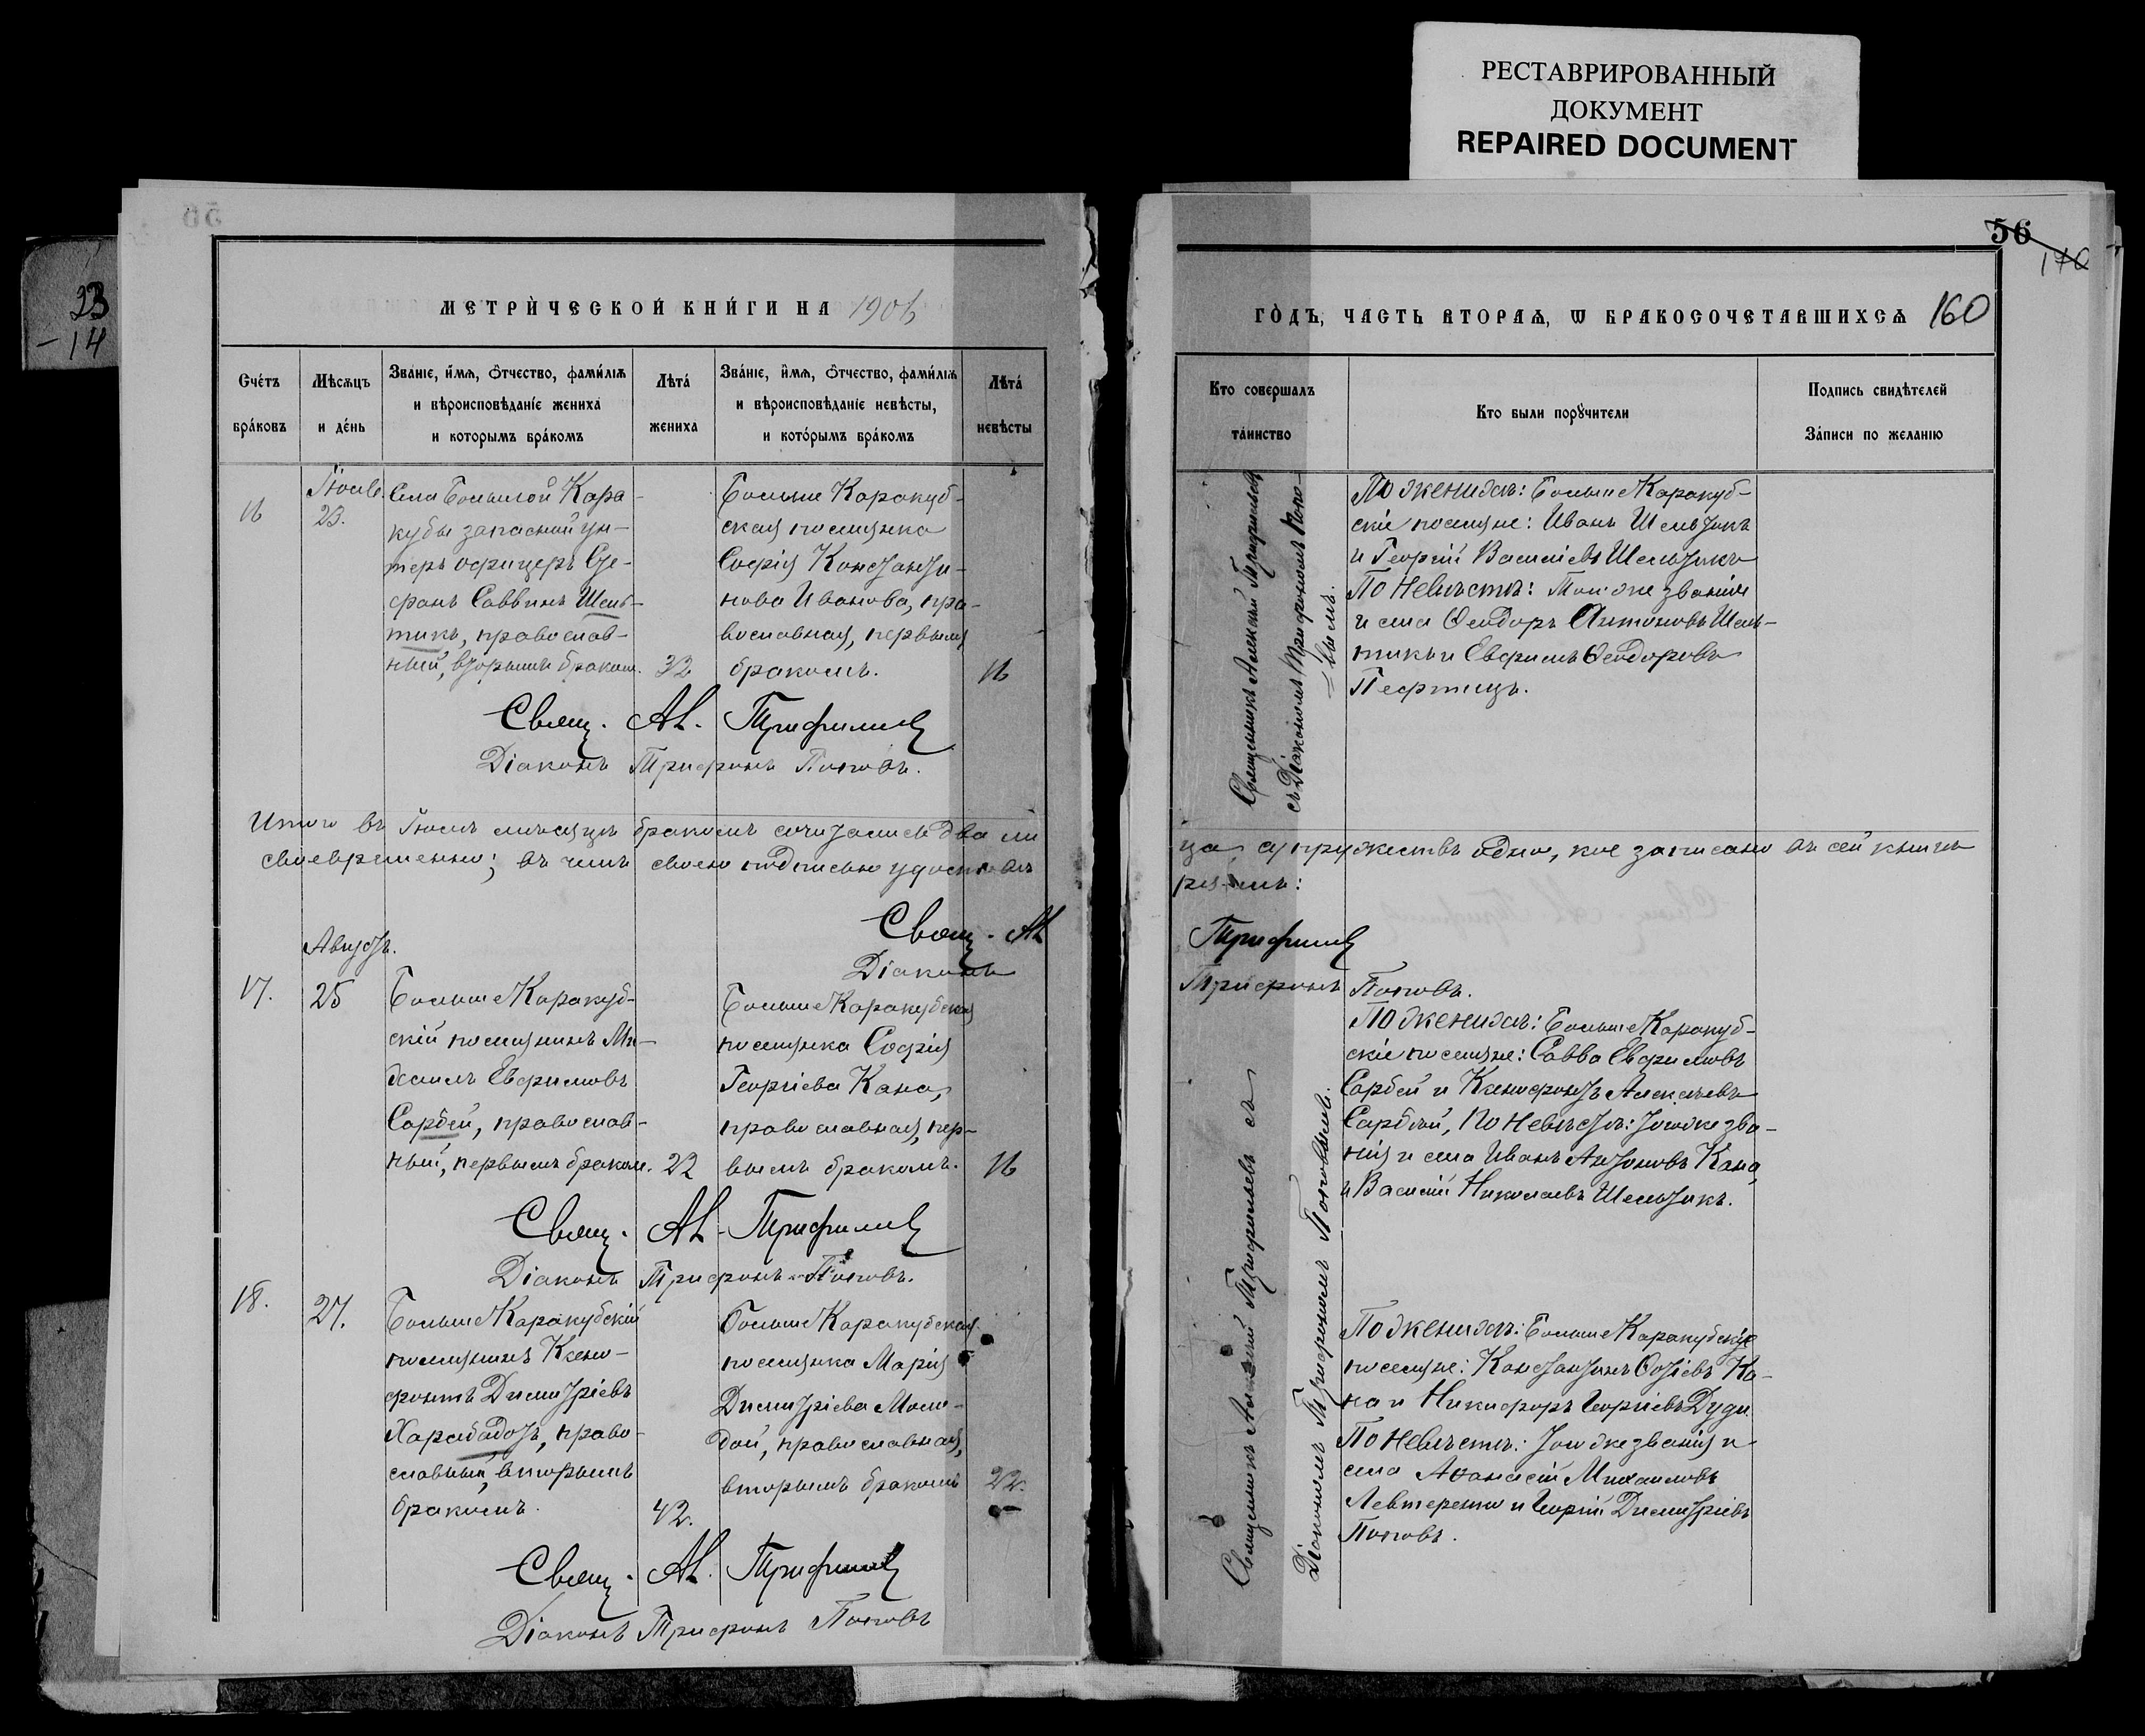 РЕСТАВРИРОВАННЫЙ
ДОКУМЕНТ
REPAIRED DOCUMENT
23
- 14
МЕТРИЧЕСКОЙ КНИГИ НА 1906
Счетъ браковъ
Мѣсяцъ и день
Званіе, имя, отчество, фамилія
и вѣроисповѣданіе жениха
и которымъ бракомъ
Лѣта жениха
Званіе, имя, отчество, фамилія
и вѣроисповѣданіе невѣсты,
и которымъ бракомъ
Лѣта невѣсты
16
Іюль
23.
Села Большой Кара-
кубы запасный ун-
теръ офицеръ Сте-
фанъ Саввинъ Шель-
тикъ, православ-
ный, вторымъ бракомъ.
32
Больше Каракуб-
ская поселянка
Софія Константи-
нова Иванова, пра-
вославная, первымъ
бракомъ.
16
Свящ. Ал. Трифильевъ
Діаконъ Трифонъ Поповъ.
Итого въ Іюлѣ мѣсяцѣ бракомъ сочетались два ли
своевременно; въ чемъ своею подписью удостовѣ
Свящ. Ал
Діаконъ
Августъ.
17.
25
Больше Каракуб-
скій поселянинъ Ми-
хаилъ Евфимовъ
Сарбей, православ-
ный, первымъ бракомъ.
22
Больше Каракубская
поселянка Софія
Георгіева Кана,
православная, пер-
вымъ бракомъ.
16
Свящ. Ал. Трифильевъ
Діаконъ Трифонъ Поповъ.
18.
27.
Больше Каракубскій
поселянинъ Ксено-
фонтъ Димитріевъ
Харабадотъ, право-
славный, вторымъ
бракомъ.
42.
Больше Каракубская
поселянка Марія
Димитріева Моло-
дой, православная,
вторымъ бракомъ
22.
Свящ. Ал. Трифильевъ
Діаконъ Трифонъ Поповъ
56
170
ГОДЪ, ЧАСТЬ ВТОРАЯ, Ѡ БРАКОСОЧЕТАВШИХСЯ 160
Кто совершалъ таинство
Кто были поручители
Подпись свидѣтелей
Записи по желанію
Священникъ Алексій Трифильевъ
съ Діакономъ Трифономъ Попо-
вымъ.
По женихѣ: Больше Каракуб-
скіе поселяне: Иванъ Шельтикъ
и Георгій Васильевъ Шельтикъ
По Невѣстѣ: Того же званія
и села Ѳеодоръ Антоновъ Шель-
тикъ и Евфимъ Ѳеодоровъ
Пефтицъ.
ца, супружествъ одно, кое записано въ сей книгѣ
ряемъ:
Трифильевъ
Трифонъ Поповъ.
Священникъ Алексій Трифильевъ съ
Діакономъ Трифономъ Поповымъ.
По женихѣ: Больше Каракуб-
скіе поселяне: Савва Евфимовъ
Сарбей и Ксенофонтъ Алексѣевъ
Сарбей, По Невѣстѣ: того же зва-
нія и села Иванъ Антоновъ Кана,
и Василій Николаевъ Шельтикъ.
По женихѣ: Больше Каракубскіе
поселяне: Константинъ Ка-
на и Никифоръ Георгіевъ Дуди
По Невѣстѣ: того же званія и
села Аѳанасій Михаиловъ
Левтеренко и Георгій Димитріевъ
Поповъ.